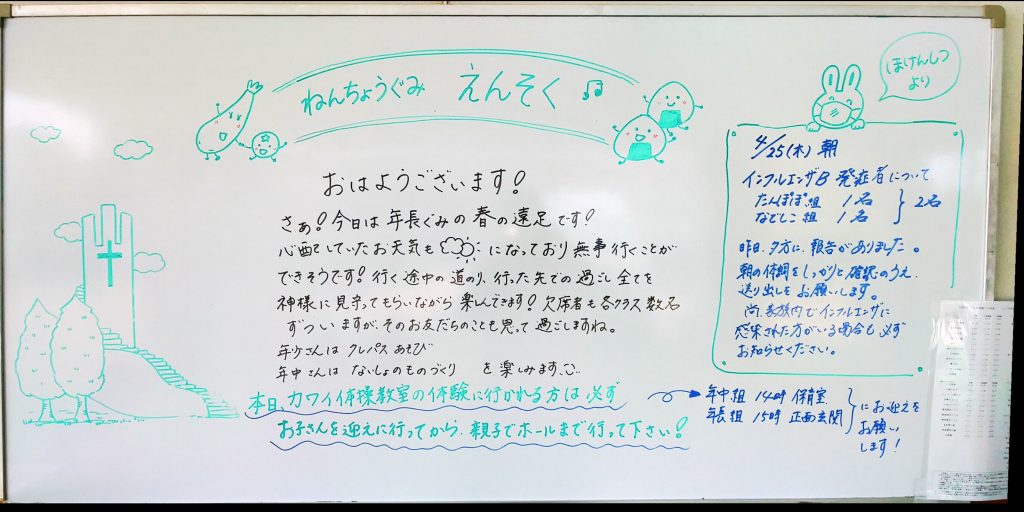 ねんちょうぐみ えんそく
おはようございます!
さぁ!今日は年長ぐみの春の遠足です!
心配していたお天気も になっており無事行くことが
できそうです!行く途中の道のり、行った先での過ごし全てを
神様に見守ってもらいながら楽しんできます!欠席者も各クラス数名
ずついますが、そのお友だちのことも思って過ごしますね。
年少さんは クレパスあそび
年中さんは ないしょのものづくり を楽しみます
本日、カワイ体操教室の体験に行かれる方は必ず
お子さんを迎えに行ってから、親子でホールまで行って下さい!
年中組 14時 保育室
年長組 15時 正面玄関
にお迎えを
お願い
します!
ほけんしつ
より
4/25(木)朝
インフルエンザB 発症者について
たんぽぽ組 1名
なでしこ組 1名
2名
昨日、夕方に、報告がありました。
朝の体調をしっかりと確認のうえ、
送り出しをお願いします。
尚、家族内でインフルエンザに
感染された方がいる場合も必ず
お知らせください。